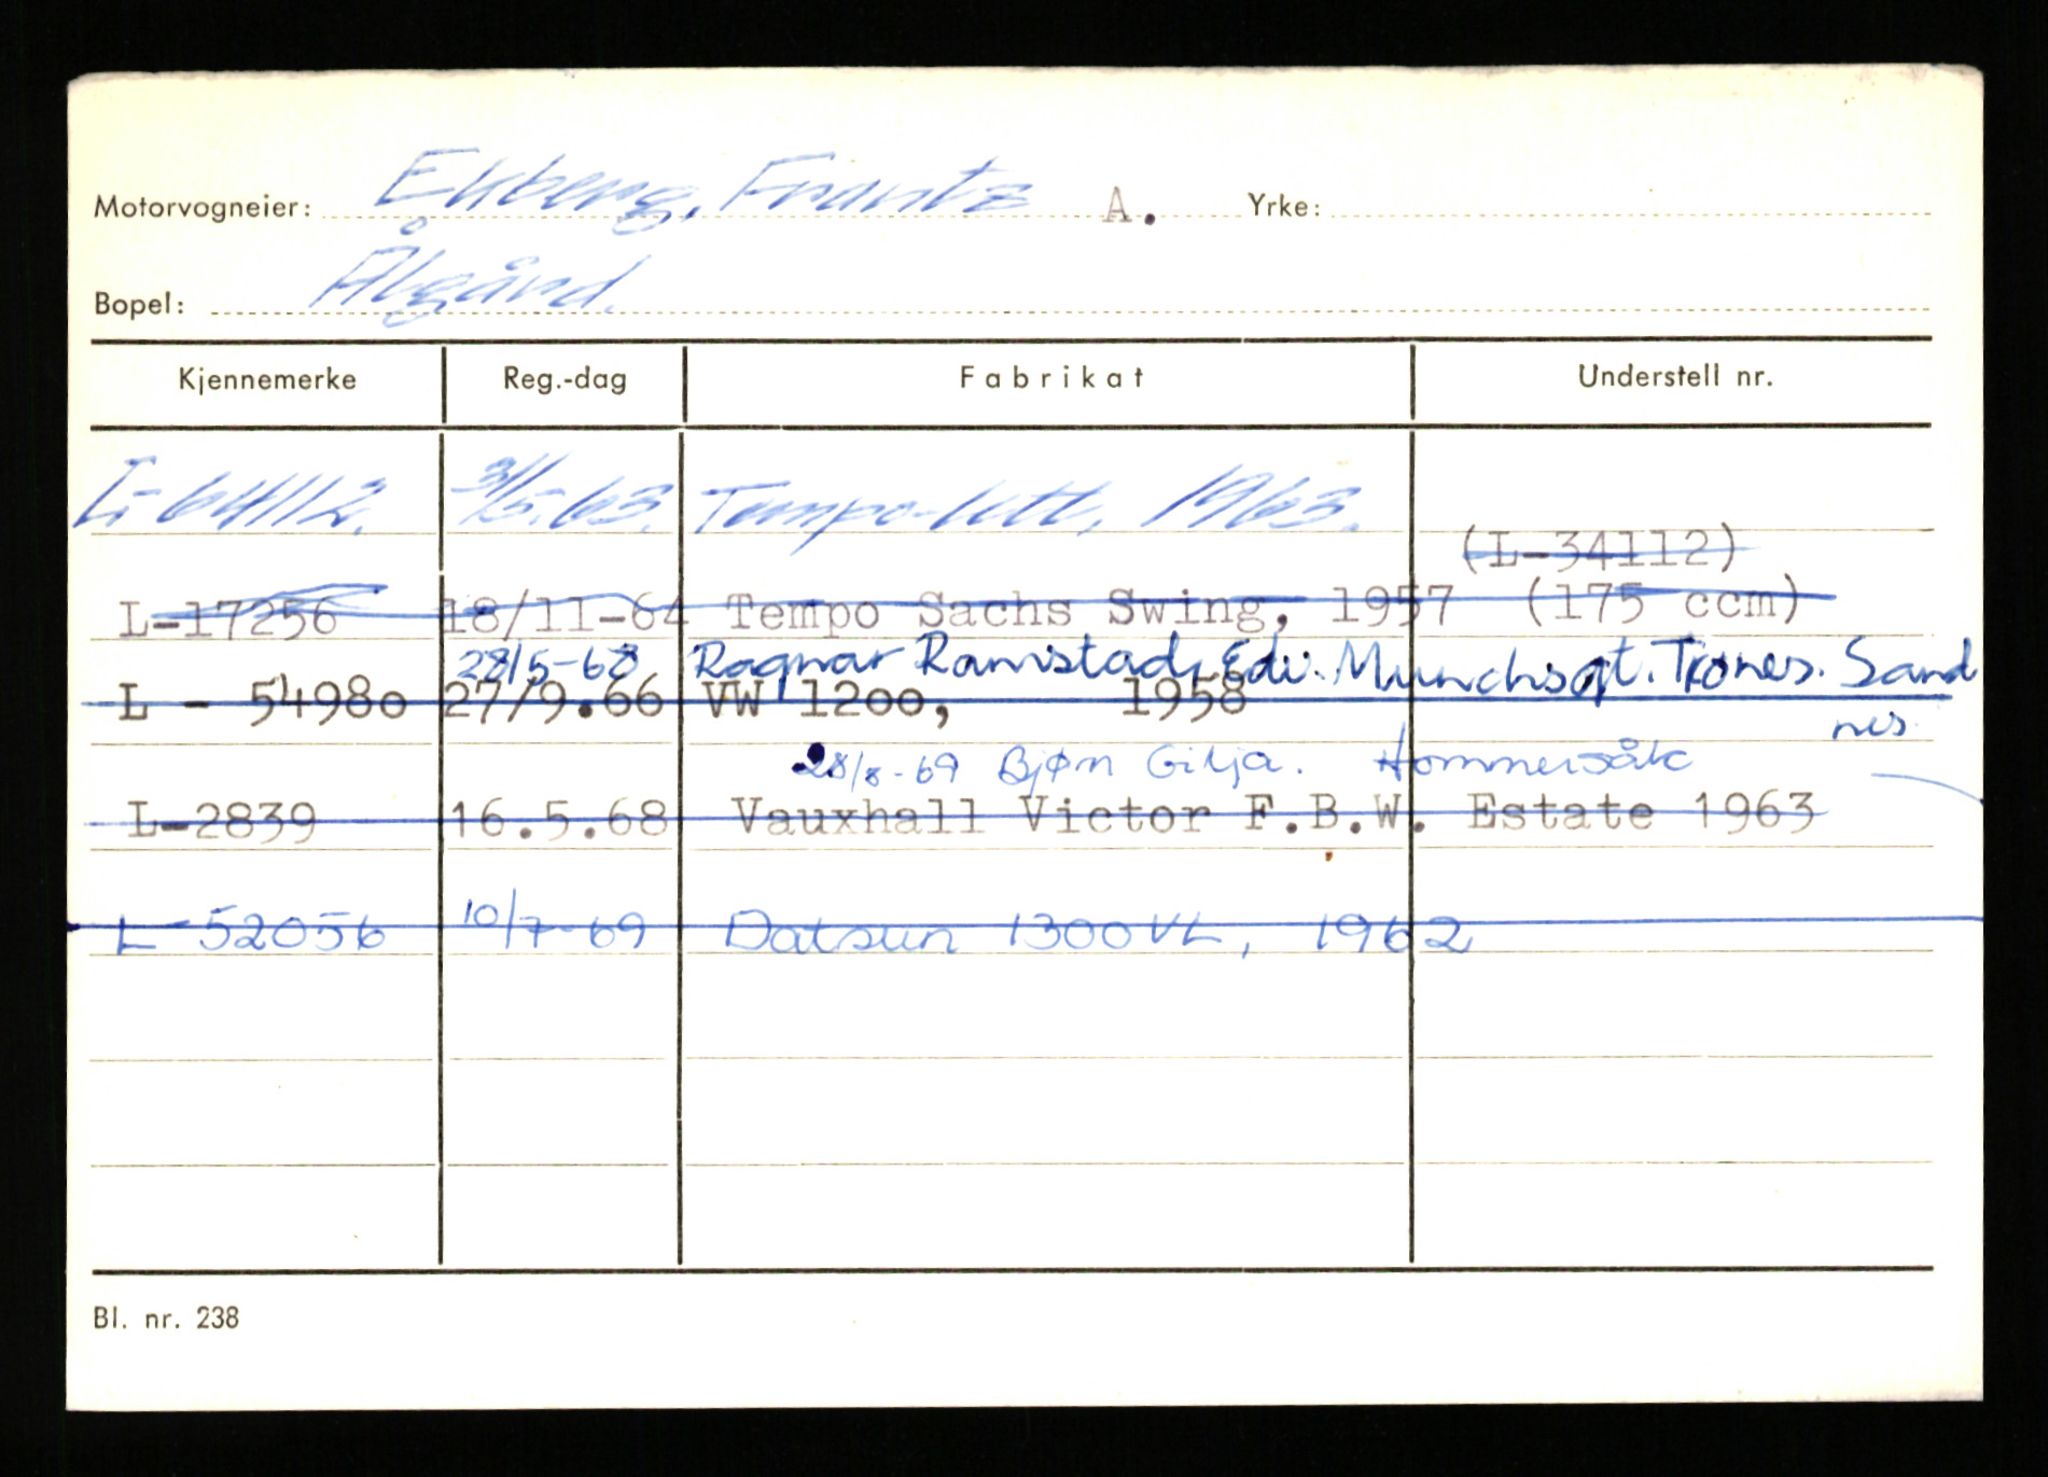 Motorvogneier: Ekberg, Frantz A. Yrke:
Bopel: Ålgård.
Kjennemerke Reg.-dag Fabrikat Understell nr.
L-64112. 3/5.63. Tempo-lett, 1963.
(L-34112)
L-17256 18/11-64 Tempo Sachs Swing, 1957 (175 ccm)
28/5-68 Ragnar Ramstad, Edv. Munchsgt. Trones. Sand
L - 54980 27/9.66 VW 1200, 1958
nes
28/8-69 Bjørn Gilja. Hommersåk
L-2839 16.5.68 Vauxhall Victor F.B.W. Estate 1963
L-52056 10/7-69 Datsun 1300 VL, 1962
Bl. nr. 238